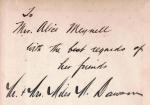 To
Mrs. Alice Meynell
With the best regards of
her friends
Mr. & Mrs. Miles M. Dawson